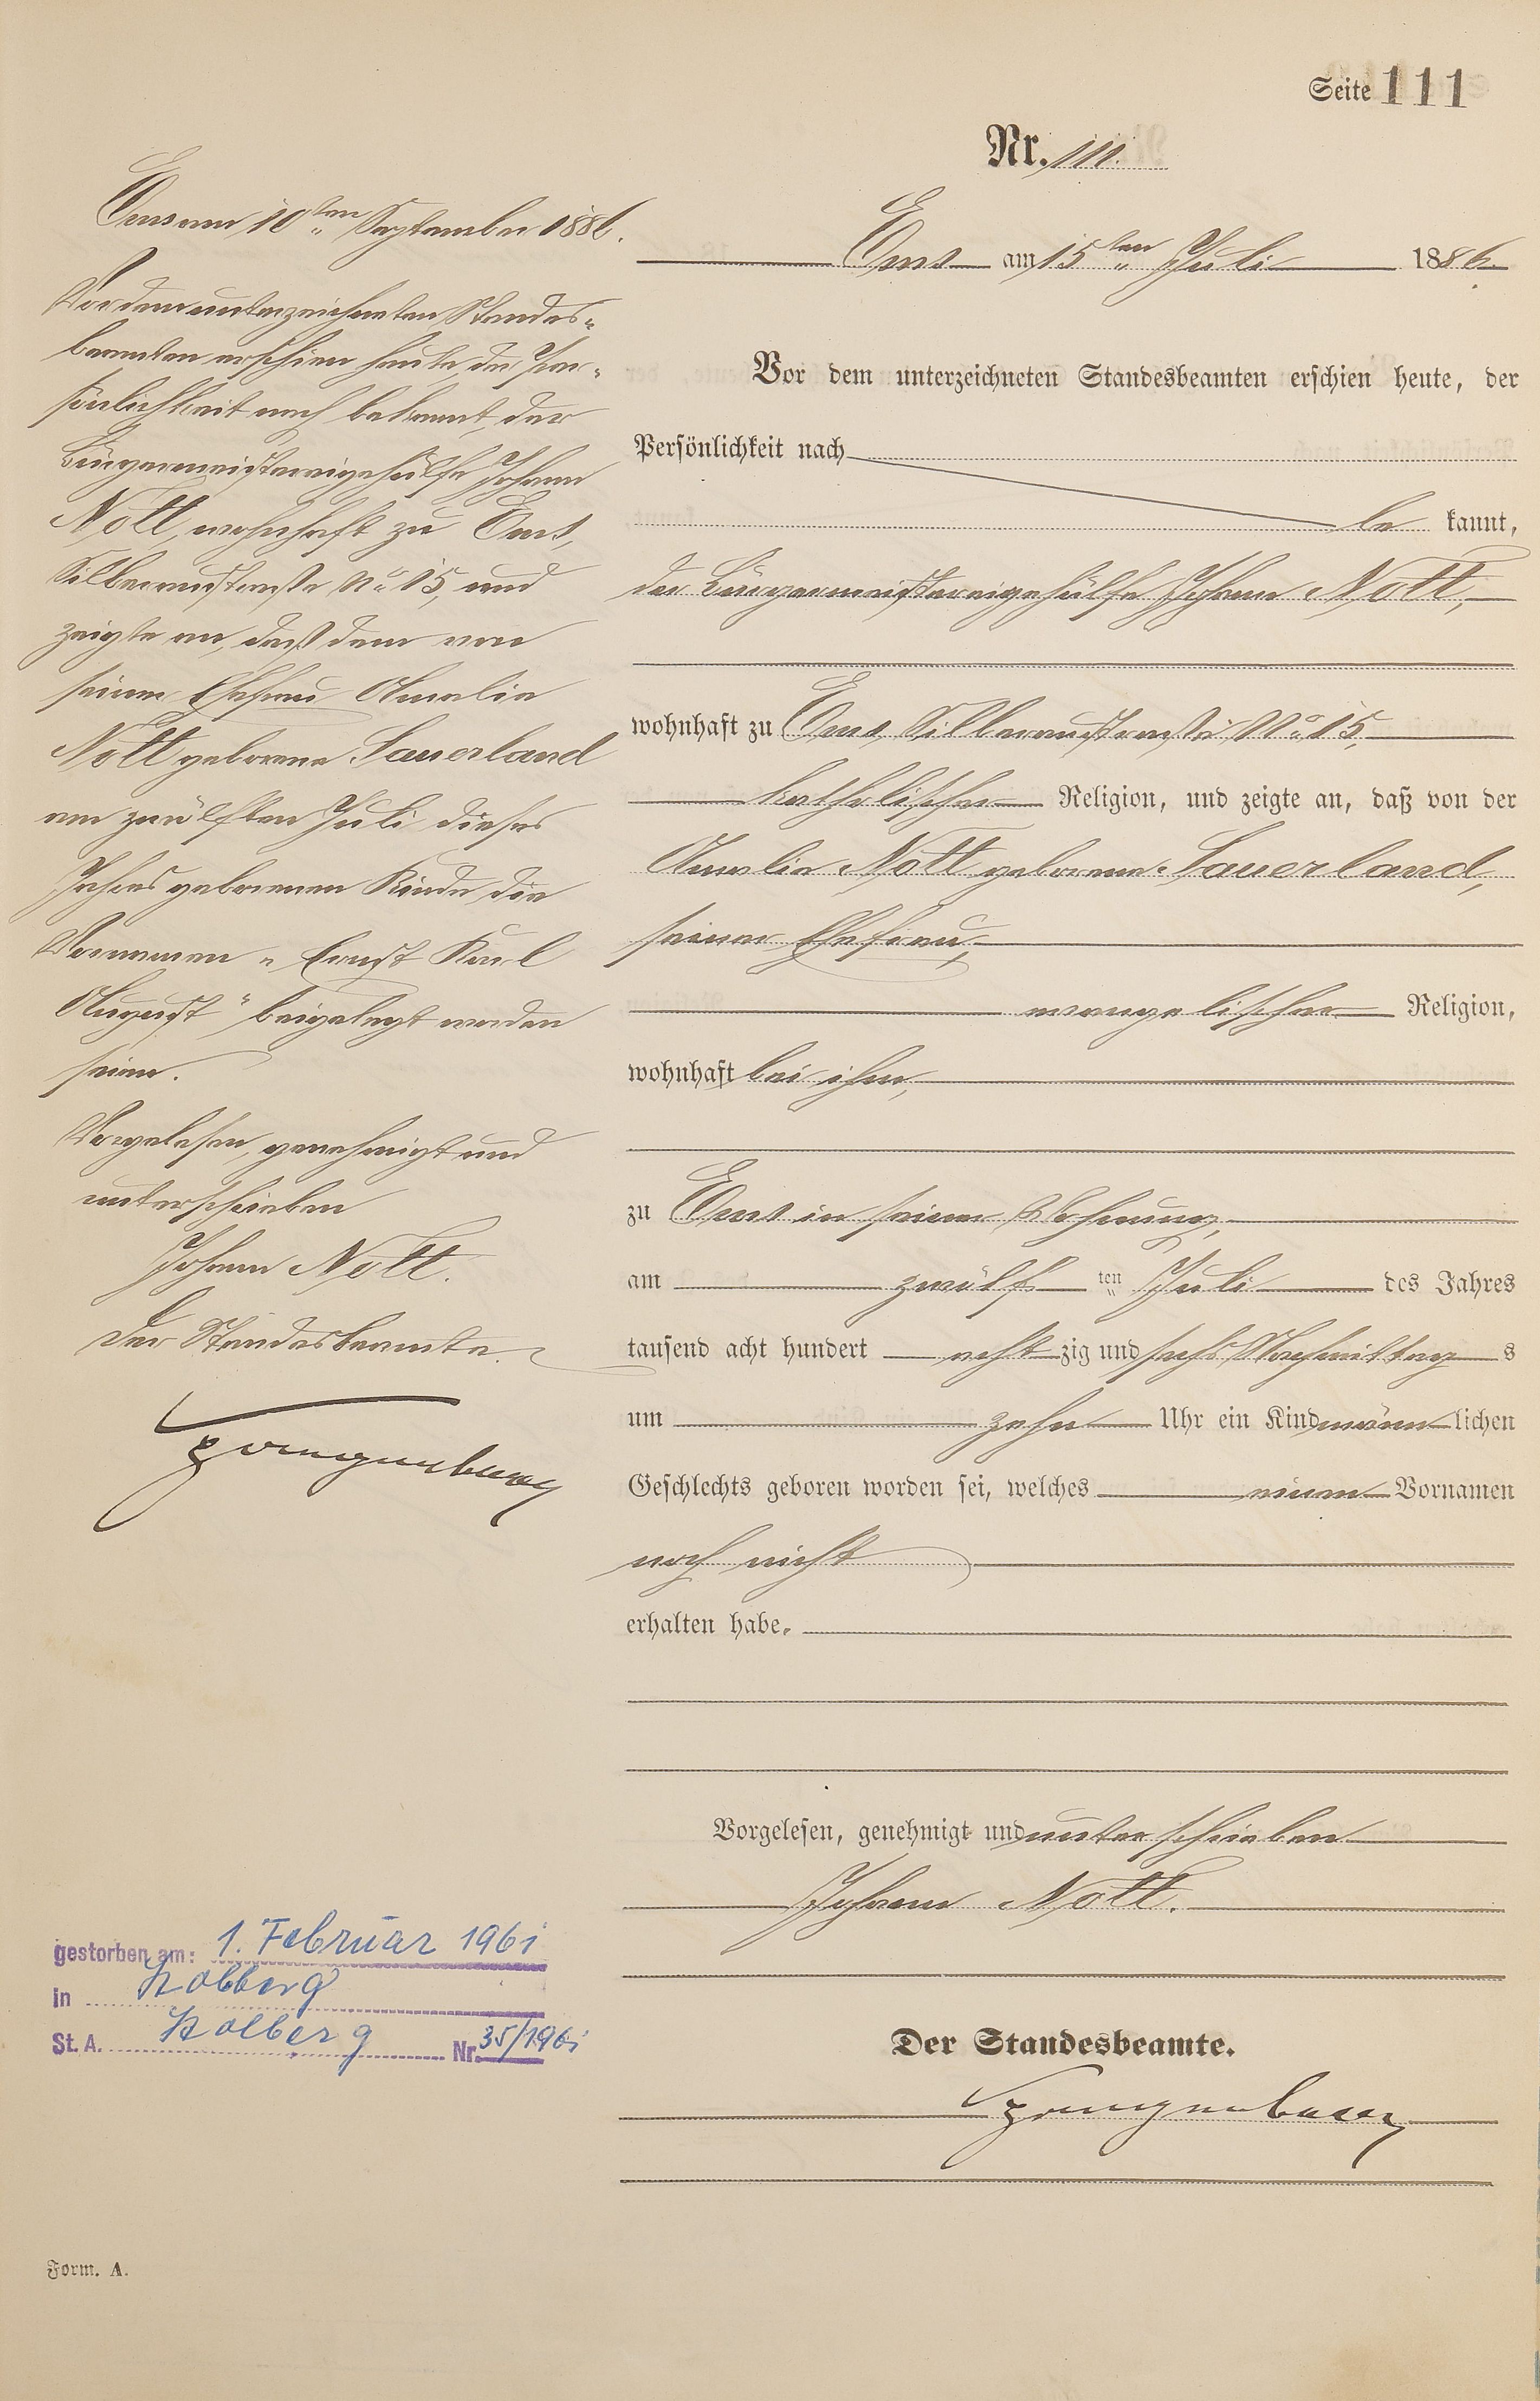 Seite 111
Nr. 111.
Ems am 15ten Juli 1886.
Vor dem unterzeichneten Standesbeamten erschien heute, der
Persönlichkeit nach
be kannt,
der Bürgermeistereigehülfe Johann Nott,
wohnhaft zu Ems, Silberaustraße No 15,
katholischer Religion, und zeigte an, daß von der
Amalia Nott geborene Sauerland,
seiner Ehefrau,
evangelischer Religion,
wohnhaft bei ihm,
zu Ems in seiner Wohnung,
am zwölf ten Juli des Jahres
tausend acht hundert acht zig und sechs Nachmittag s
um zehn Uhr ein Kind männ lichen
Geschlechts geboren worden sei, welches einen Vornamen
noch nicht
erhalten habe.
Vorgelesen, genehmigt und unterschrieben
Johann Nott.
Der Standesbeamte.
Ems am 10ten September 1886.
Vor dem unterzeichneten Standes-
beamten erschien heute, der Per-
sönlichkeit nach bekannt, der
Bürgermeistereigehülfe Johann
Nott, wohnhaft zu Ems,
Silberaustraße No 15, und
zeigte an, daß dem von
seiner Ehefrau Amalia
Nott geborene Sauerland
am zwölften Juli dieses
Jahres geborenen Kinde die
Vornamen „Ernst Karl
August“ beigelegt worden
seien.
Vorgelesen, genehmigt und
unterschrieben
Johann Nott.
Der Standesbeamte.
gestorben am: 1. Februar 1961
in Stolberg
St. A. Stolberg Nr. 35/1961
Form. A.